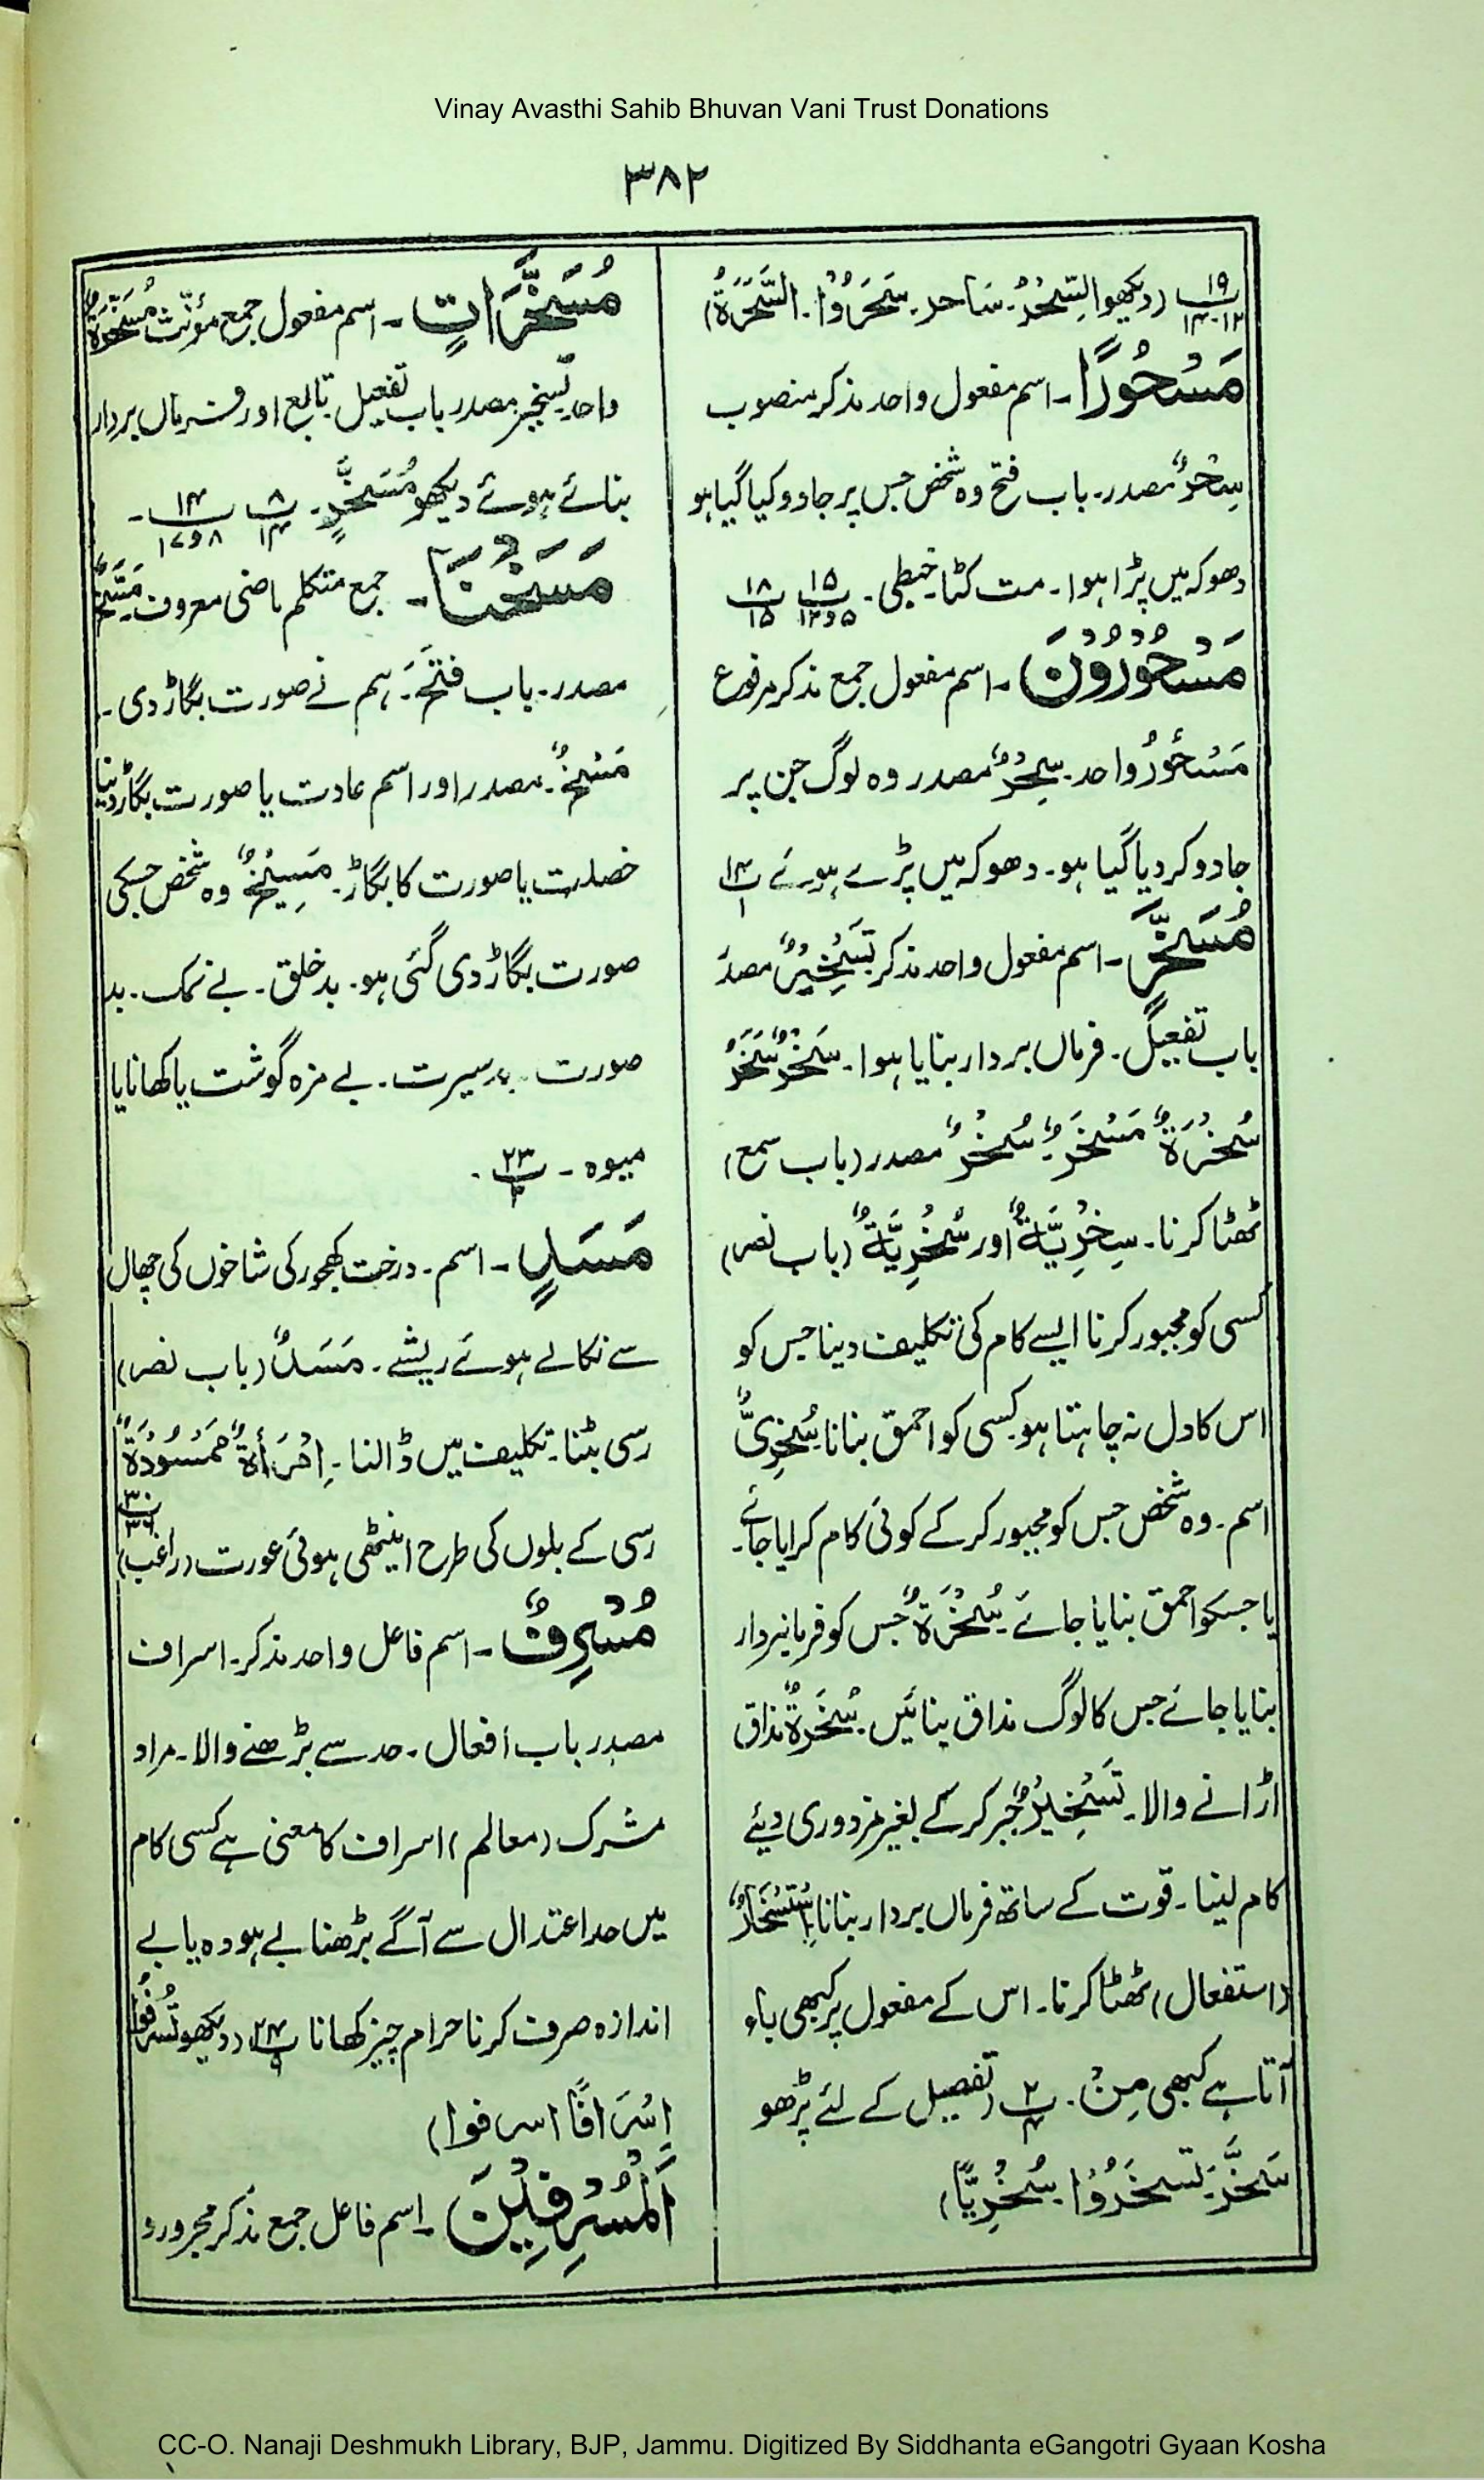 Vinay Avasthi Sahib Bhuvan Vani Trust Donations
۳۸۲
۱۹ ۱۲-۱۴ (دیکھو السِّحْرُ۔ سَاحر۔ سَحَرُوْا۔ السَّحَرَةُ)
مَسْحُوْرًا۔ اسم مفعول واحد مذکر منصوب
سِحْرٌ مصدر۔ باب فتح وہ شخص جس پر جادو کیا گیا ہو
دھوکہ میں پڑا ہوا۔ مت کٹا۔ خبطی۔ ۱۵ ۵و۱۲ ۱۸ ۱۵
مَسْحُوْرُوْنَ۔ اسم مفعول جمع مذکر مرفوع
مَسْحُوْرٌ واحد۔ سِحْرٌ مصدر وہ لوگ جن پر
جادو کر دیا گیا ہو۔ دھوکہ میں پڑے ہوئے ۱۴ ۱
مُسَخَّرٍ۔ اسم مفعول واحد مذکر تَسْخِیْرٌ مصدر
باب تفعیل۔ فرماں بردار بنایا ہوا۔ سَخْرٌ سَخَرٌ
سُخْرَةٌ مَسْخَرٌ۔ سُخْرٌ مصدر (باب سمع)
ٹھٹا کرنا۔ سِخْرِيَّةٌ اور سُخْرِيَّةٌ (باب نصر)
کسی کو مجبور کرنا ایسے کام کی تکلیف دینا جس کو
اس کا دل نہ چاہتا ہو کسی کو احمق بنانا سُخْرِيٌّ
اسم۔ وہ شخص جس کو مجبور کر کے کوئی کام کرایا جائے۔
یا جسکو احمق بنایا جائے۔ سُخْرَةٌ جس کو فرمانبردار
بنایا جائے جس کا لوگ مذاق بنائیں۔ سُخَرَةٌ مذاق
اڑانے والا۔ تَسْخِیْرٌ جبر کر کے بغیر مزدوری دیئے
کام لینا۔ قوت کے ساتھ فرماں بردار بنانا اِسْتِسْخَارٌ
(استفعال) ٹھٹا کرنا۔ اس کے مفعول پر کبھی باء
آتا ہے کبھی مِنْ۔ ۲ ۴ (تفصیل کے لئے پڑھو
سَخَّرَ۔ تسخَرُوْا۔ سُخْرِيًّا)
مُسَخَّرَاتٍ۔ اسم مفعول جمع مؤنث مُسَخَّرَةٌ
واحد تسخیر مصدر باب تفعیل تابع اور فرماں بردار
بنائے ہوئے دیکھو مُسَخَّرٍ۔ ۸ ۱۴ ۱۴ ۸و۱۷۔
مَسَخْنَا۔ جمع متکلم ماضی معروف۔ مَسْخٌ
مصدر۔ باب فَتَحَ۔ ہم نے صورت بگاڑ دی۔
مَسْخٌ۔ مصدر اور اسم عادت یا صورت بگاڑ دینا
خصلت یا صورت کا بگاڑ۔ مَسِیْخٌ وہ شخص جسکی
صورت بگاڑ دی گئی ہو۔ بد خلق۔ بے نمک۔ بد
صورت۔ بد سیرت۔ بے مزہ گوشت یا کھانا یا
میوہ۔ ۲۳
مَسَدٍ۔ اسم۔ درخت کھجور کی شاخوں کی چھال
سے نکالے ہوئے ریشے۔ مَسَدٌ (باب نصر)
رسی بٹنا۔ تکلیف میں ڈالنا۔ اِمْرَأَةٌ مَمْسُوْدَةٌ
رسی کے بلوں کی طرح اینٹھی ہوئی عورت (راغب) ۳۰ ۳۶
مُسْرِفٌ۔ اسم فاعل واحد مذکر۔ اسراف
مصدر باب افعال۔ حد سے بڑھنے والا۔ مراد
مشرک (معالم) اسراف کا معنی ہے کسی کام
میں حد اعتدال سے آگے بڑھنا بے ہودہ یا بے
اندازہ صرف کرنا حرام چیز کھانا ۲۴ ۹ (دیکھو تُسْرِفُوْا
اِسْرَافًا اسرفوا)
اَلْمُسْرِفِیْنَ۔ اسم فاعل جمع مذکر مجرور و
CC-O. Nanaji Deshmukh Library, BJP, Jammu. Digitized By Siddhanta eGangotri Gyaan Kosha